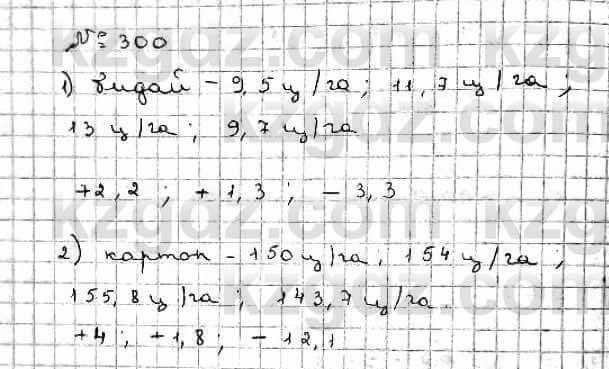 № 300
1) бидай - 9,5 ц/га; 11,7 ц/га;
13 ц/га; 9,7 ц/га
+2,2; +1,3; -3,3
2) картоп - 150 ц/га, 154 ц/га;
155,8 ц/га; 143,7 ц/га.
+4; +1,8; -12,1
kzgdz.com